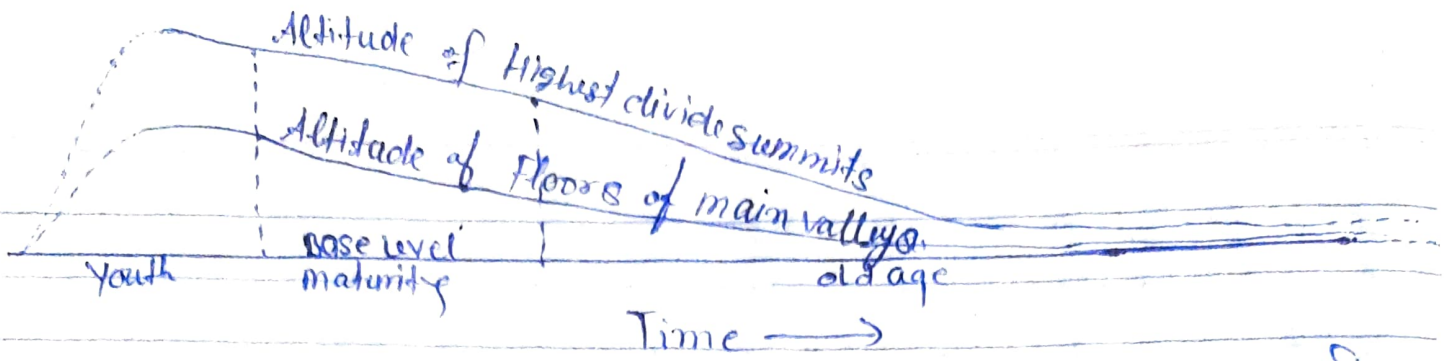 Altitude of Highest divide summits
Altidude of Floors of main valleys.
Base level
Youth
maturity
old age
Time